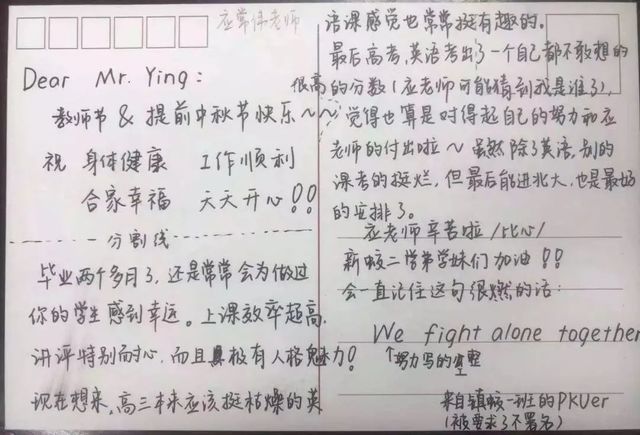 应常伟老师
Dear Mr. Ying:
教师节 & 提前中秋节快乐～～
祝 身体健康 工作顺利
合家幸福 天天开心!!
分割线
毕业两个多月了,还是常常会为做过
你的学生感到幸运。上课效率超高,
讲评特别耐心,而且极有人格魅力!
现在想来,高三本来应该挺枯燥的英
语课感觉也常常挺有趣的。
最后高考,英语考出了一个自己都不敢想的
很高的分数(应老师可能猜到我是谁了),
觉得也算是对得起自己的努力和应
老师的付出啦～ 虽然除了英语,别的
课考的挺烂,但最后能进北大,也是最好
的安排了。
应老师辛苦啦/比心/
新蛟二学弟学妹们加油!!
会一直记住这句很燃的话:
We fight alone together
↑努力写的工整
来自镇蛟一班的PKUer
(被要求了不署名)